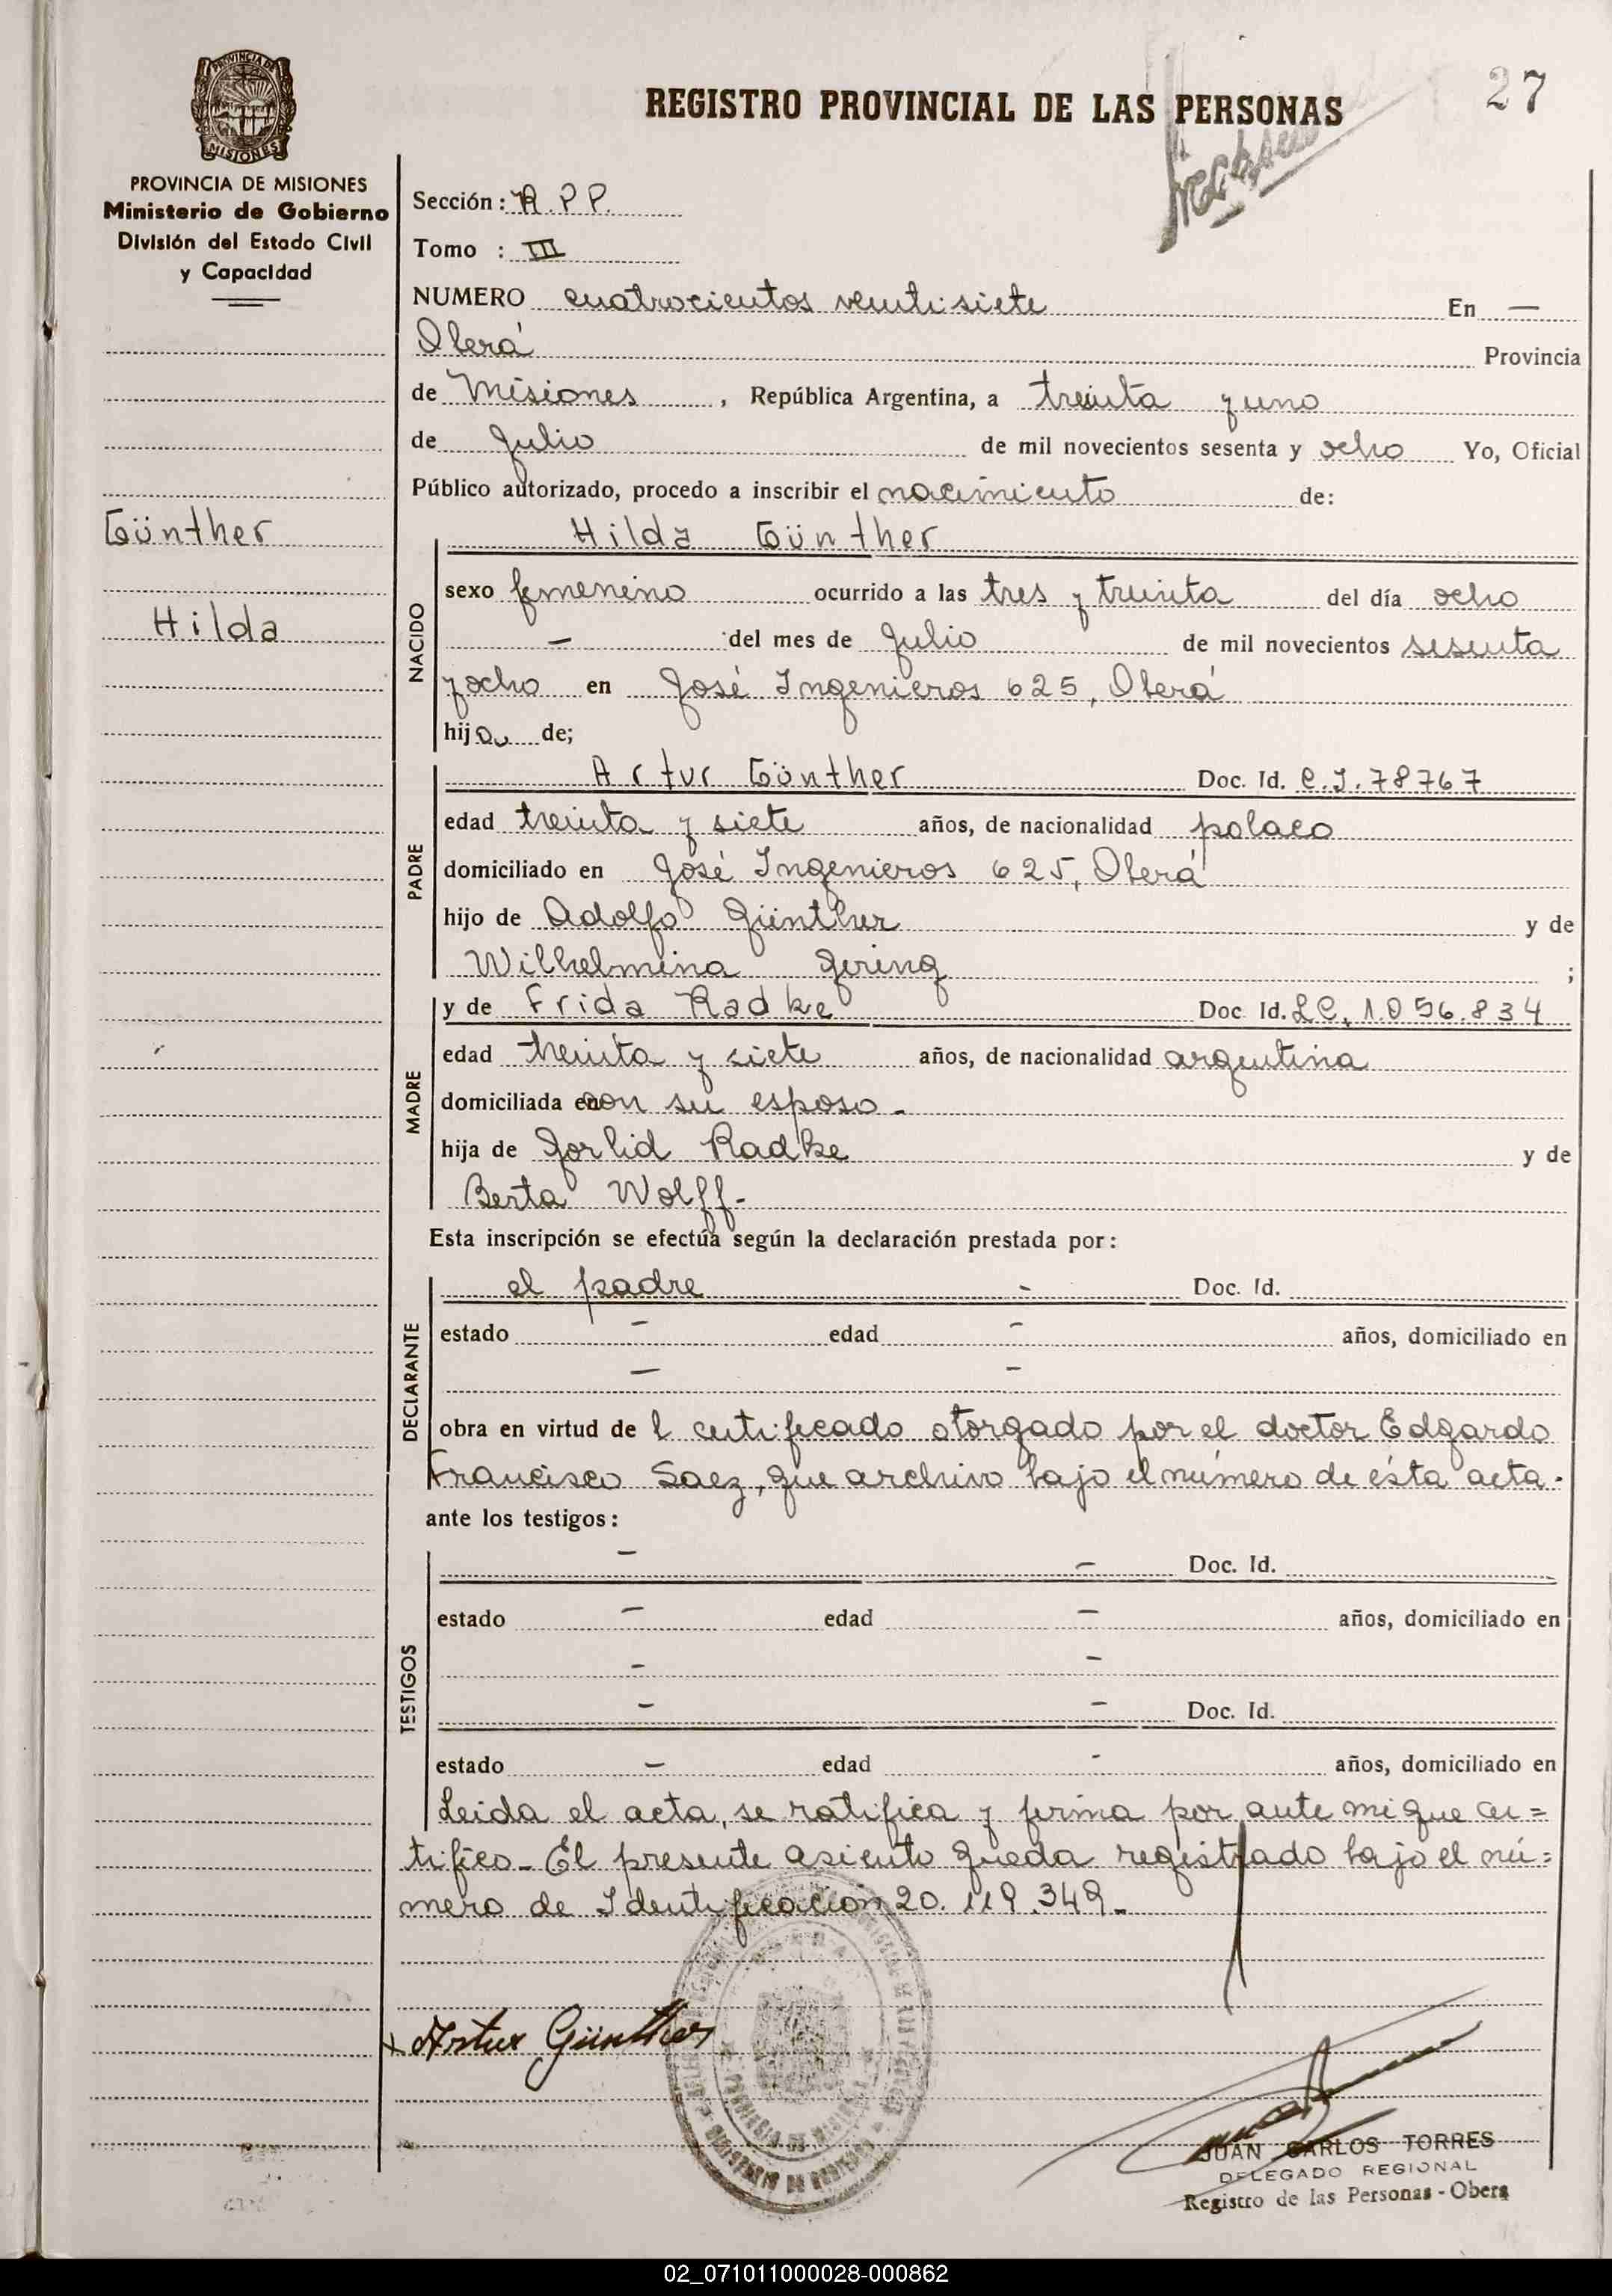 27
REGISTRO PROVINCIAL DE LAS PERSONAS
PROVINCIA DE
MISIONES
PROVINCIA DE MISIONES
Ministerio de Gobierno
División del Estado Civil
y Capacidad
Günther
Hilda
Sección: R.P.P.
Tomo : III
NUMERO cuatrocientos ventisiete En —
Oberá Provincia
de Misiones, República Argentina, a treinta y uno
de Julio de mil novecientos sesenta y ocho Yo, Oficial
Público autorizado, procedo a inscribir el nacimiento de:
Hilda Günther
NACIDO
sexo femenino ocurrido a las tres y treinta del día ocho
— del mes de Julio de mil novecientos sesenta
y ocho en José Ingenieros 625, Oberá
hija de;
PADRE
Artur Günther Doc. Id. C.I. 78767
edad treinta y siete años, de nacionalidad polaco
domiciliado en José Ingenieros 625, Oberá
hijo de Adolfo Günther y de
Wilhelmina Gering ;
MADRE
y de Frida Radke Doc Id. L.C. 1.056.834
edad treinta y siete años, de nacionalidad argentina
domiciliada en con su esposo -
hija de Gorlid Radke y de
Berta Wolff-
Esta inscripción se efectúa según la declaración prestada por:
DECLARANTE
el padre - Doc. Id.
estado — edad — años, domiciliado en
— —
obra en virtud de l certificado otorgado por el doctor Edgardo
Francisco Saez, que archivo bajo el número de ésta acta.
ante los testigos:
TESTIGOS
— — Doc. Id.
estado — edad — años, domiciliado en
— —
— — Doc. Id.
estado — edad - años, domiciliado en
Leida el acta, se ratifica y firma por ante mi que cer=
tifico_ El presente asiento queda registrado bajo el nú=
mero de Identificación 20.119.349._
Artur Günther
JUAN CARLOS TORRES
DELEGADO REGIONAL
Registro de las Personas - Obera
02_071011000028-000862